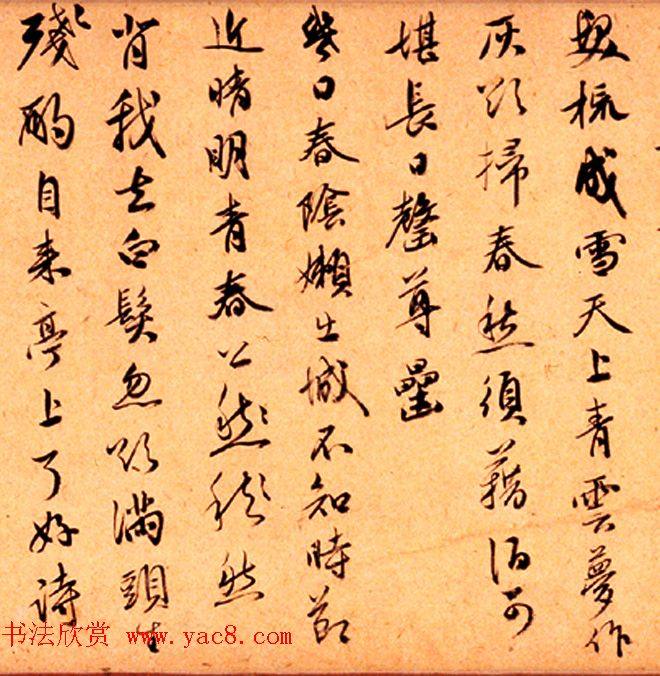 成雪天上青雲夢作
灰欲掃春愁須藉酒可
堪長日罄尊罍
終日春陰嬾出城不知時節
近晴明青春公然然
背我去白髮忽欲滿頭生
殘酌自来亭上了好詩
书法欣赏 www.yac8.com